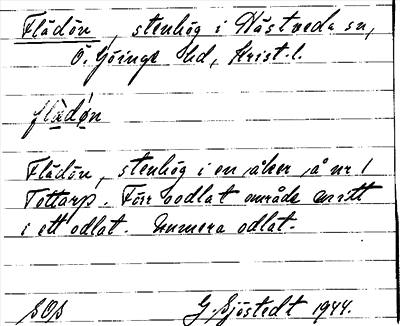 Flädön, stenhög i Västveda sn,
Ö. Göinge hd, Krist. l.
flàdǿn
Flädön, stenhög i en åker å nr 1
Tottarp. Förr oodlat område omitt
i ett odlat. Numera odlat.
SOS G. Sjöstedt 1944.